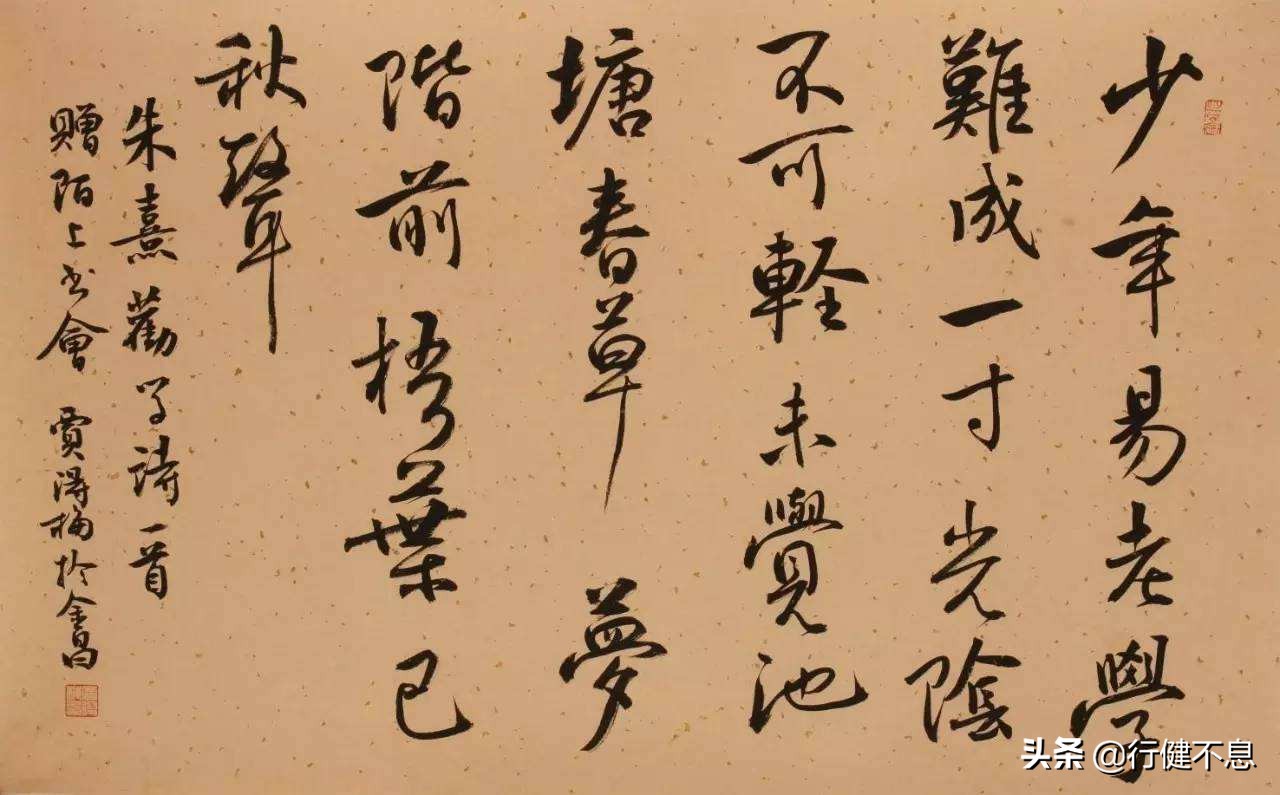 少年易老學
難成一寸光陰
不可輕未覺池
塘春草夢
階前梧葉已
秋聲
朱熹勸学詩一首
贈陌上书會 賈得梅於金昌
头条 @行健不息